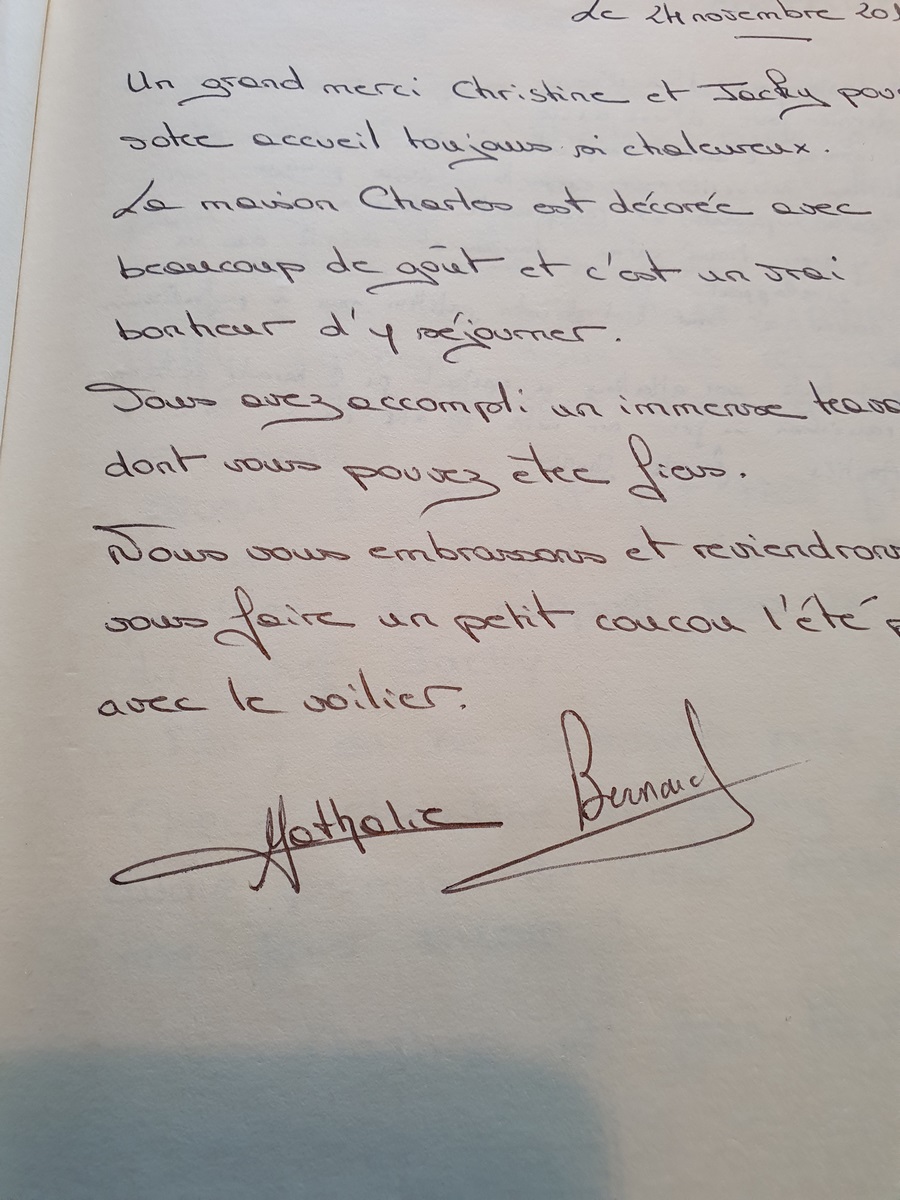 Le 24 novembre 201
Un grand merci Christine et Jacky pou
votre accueil toujours si chaleureux.
La maison Charlos est décorée avec
beaucoup de goût et c'est un vrai
bonheur d'y séjourner.
Vous avez accompli un immense trava
dont vous pouvez être fiers.
Nous vous embrassons et reviendrons
vous faire un petit coucou l'été p
avec le voilier.
Nathalie Bernard